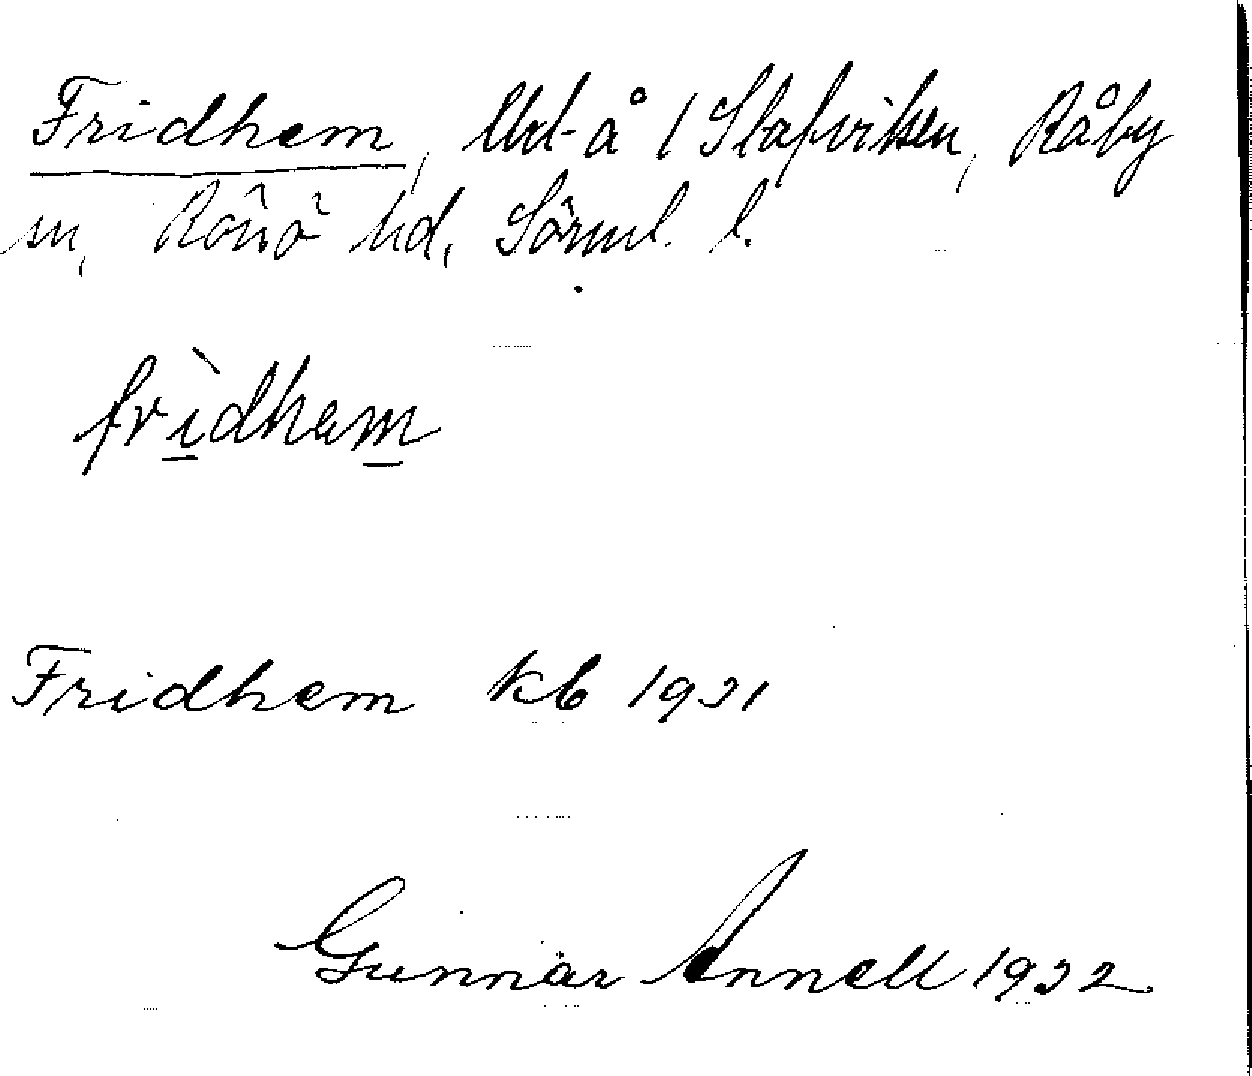 Fridhem, lht å 1 Stafviken, Råby
sn, Rönö hd, Sörml. l.
fridhem
Fridhem kb 1931
Gunnar Annell 1932